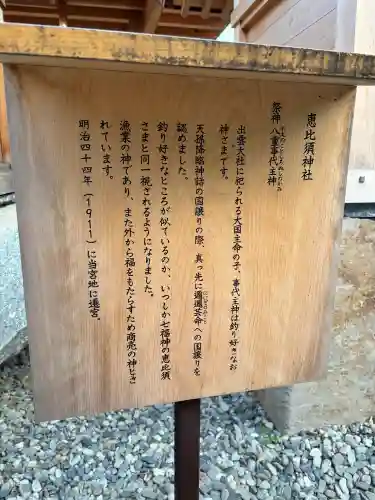 恵比須神社
祭神 八重事代主神
やえことしろぬしのかみ
出雲大社に祀られる大国主命の子、事代主神は釣り好きなお
神さまです。
天孫降臨神話の国譲りの際、真っ先に邇邇芸命への国譲りを
ににぎのみこと
認めました。
釣り好きなところが似ているのか、いつしか七福神の恵比須
さまと同一視されるようになりました。
漁業の神であり、また外から福をもたらすため商売の神ともさ
れています。
明治四十四年（1911）に当宮地に遷宮。